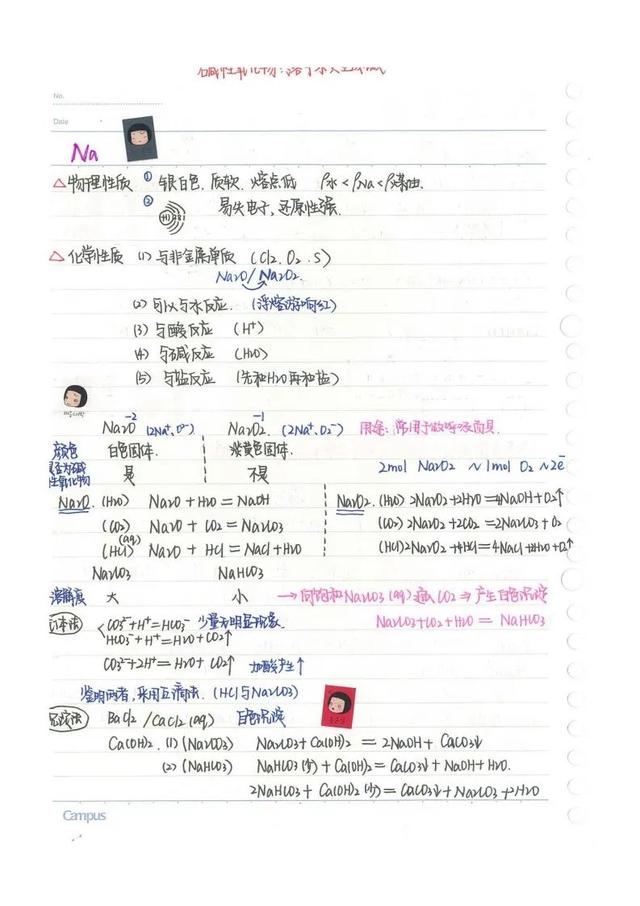 碱性氧化物:溶于水呈碱
No.
Date
Na
△物理性质 ① 银白色.质软.熔点低 ρ水<ρNa<ρ煤油.
② (+11) 2 8 1 易失电子,还原性强.
△化学性质 (1) 与非金属单质 (Cl2.O2.S)
Na2O/Na2O2.
(2) 与水反应. (浮熔游响红)
(3) 与酸反应 (H+)
(4) 与碱反应 (H2O)
(5) 与盐反应 (先和H2O再和盐)
Na2O -2 (2Na+、O2-) Na2O2 -1 (2Na+、O2 2-) 用途:常用于做呼吸面具.
颜色 白色固体. 淡黄色固体.
是否为碱性氧化物 是 不是 2mol Na2O2 ~ 1mol O2 ~ 2e-
Na2O. (H2O) Na2O + H2O = NaOH Na2O2. (H2O) 2Na2O2+2H2O=4NaOH+O2↑
(CO2) Na2O + CO2 = Na2CO3 (CO2) 2Na2O2+2CO2=2Na2CO3+O2
(HCl)(aq) Na2O + HCl = NaCl+H2O (HCl) 2Na2O2+4HCl=4NaCl+2H2O+O2↑
Na2CO3 NaHCO3
溶解度 大 小 →向饱和Na2CO3(aq)通入CO2⇒产生白色沉淀
Na2CO3+CO2+H2O = NaHCO3
气体法 CO3 2-+H+=HCO3- 少量无明显现象.
HCO3-+H+=H2O+CO2↑
CO3 2-+2H+=H2O+CO2↑ 加酸产生↑
鉴别两者,采用互滴法.(HCl与Na2CO3)
沉淀法 BaCl2/CaCl2(aq) 白色沉淀
Ca(OH)2. (1) (Na2CO3) Na2CO3+Ca(OH)2 = 2NaOH+CaCO3↓
(2) (NaHCO3) NaHCO3(少)+Ca(OH)2=CaCO3↓+NaOH+H2O.
2NaHCO3+Ca(OH)2(少)=CaCO3↓+Na2CO3+2H2O
Campus